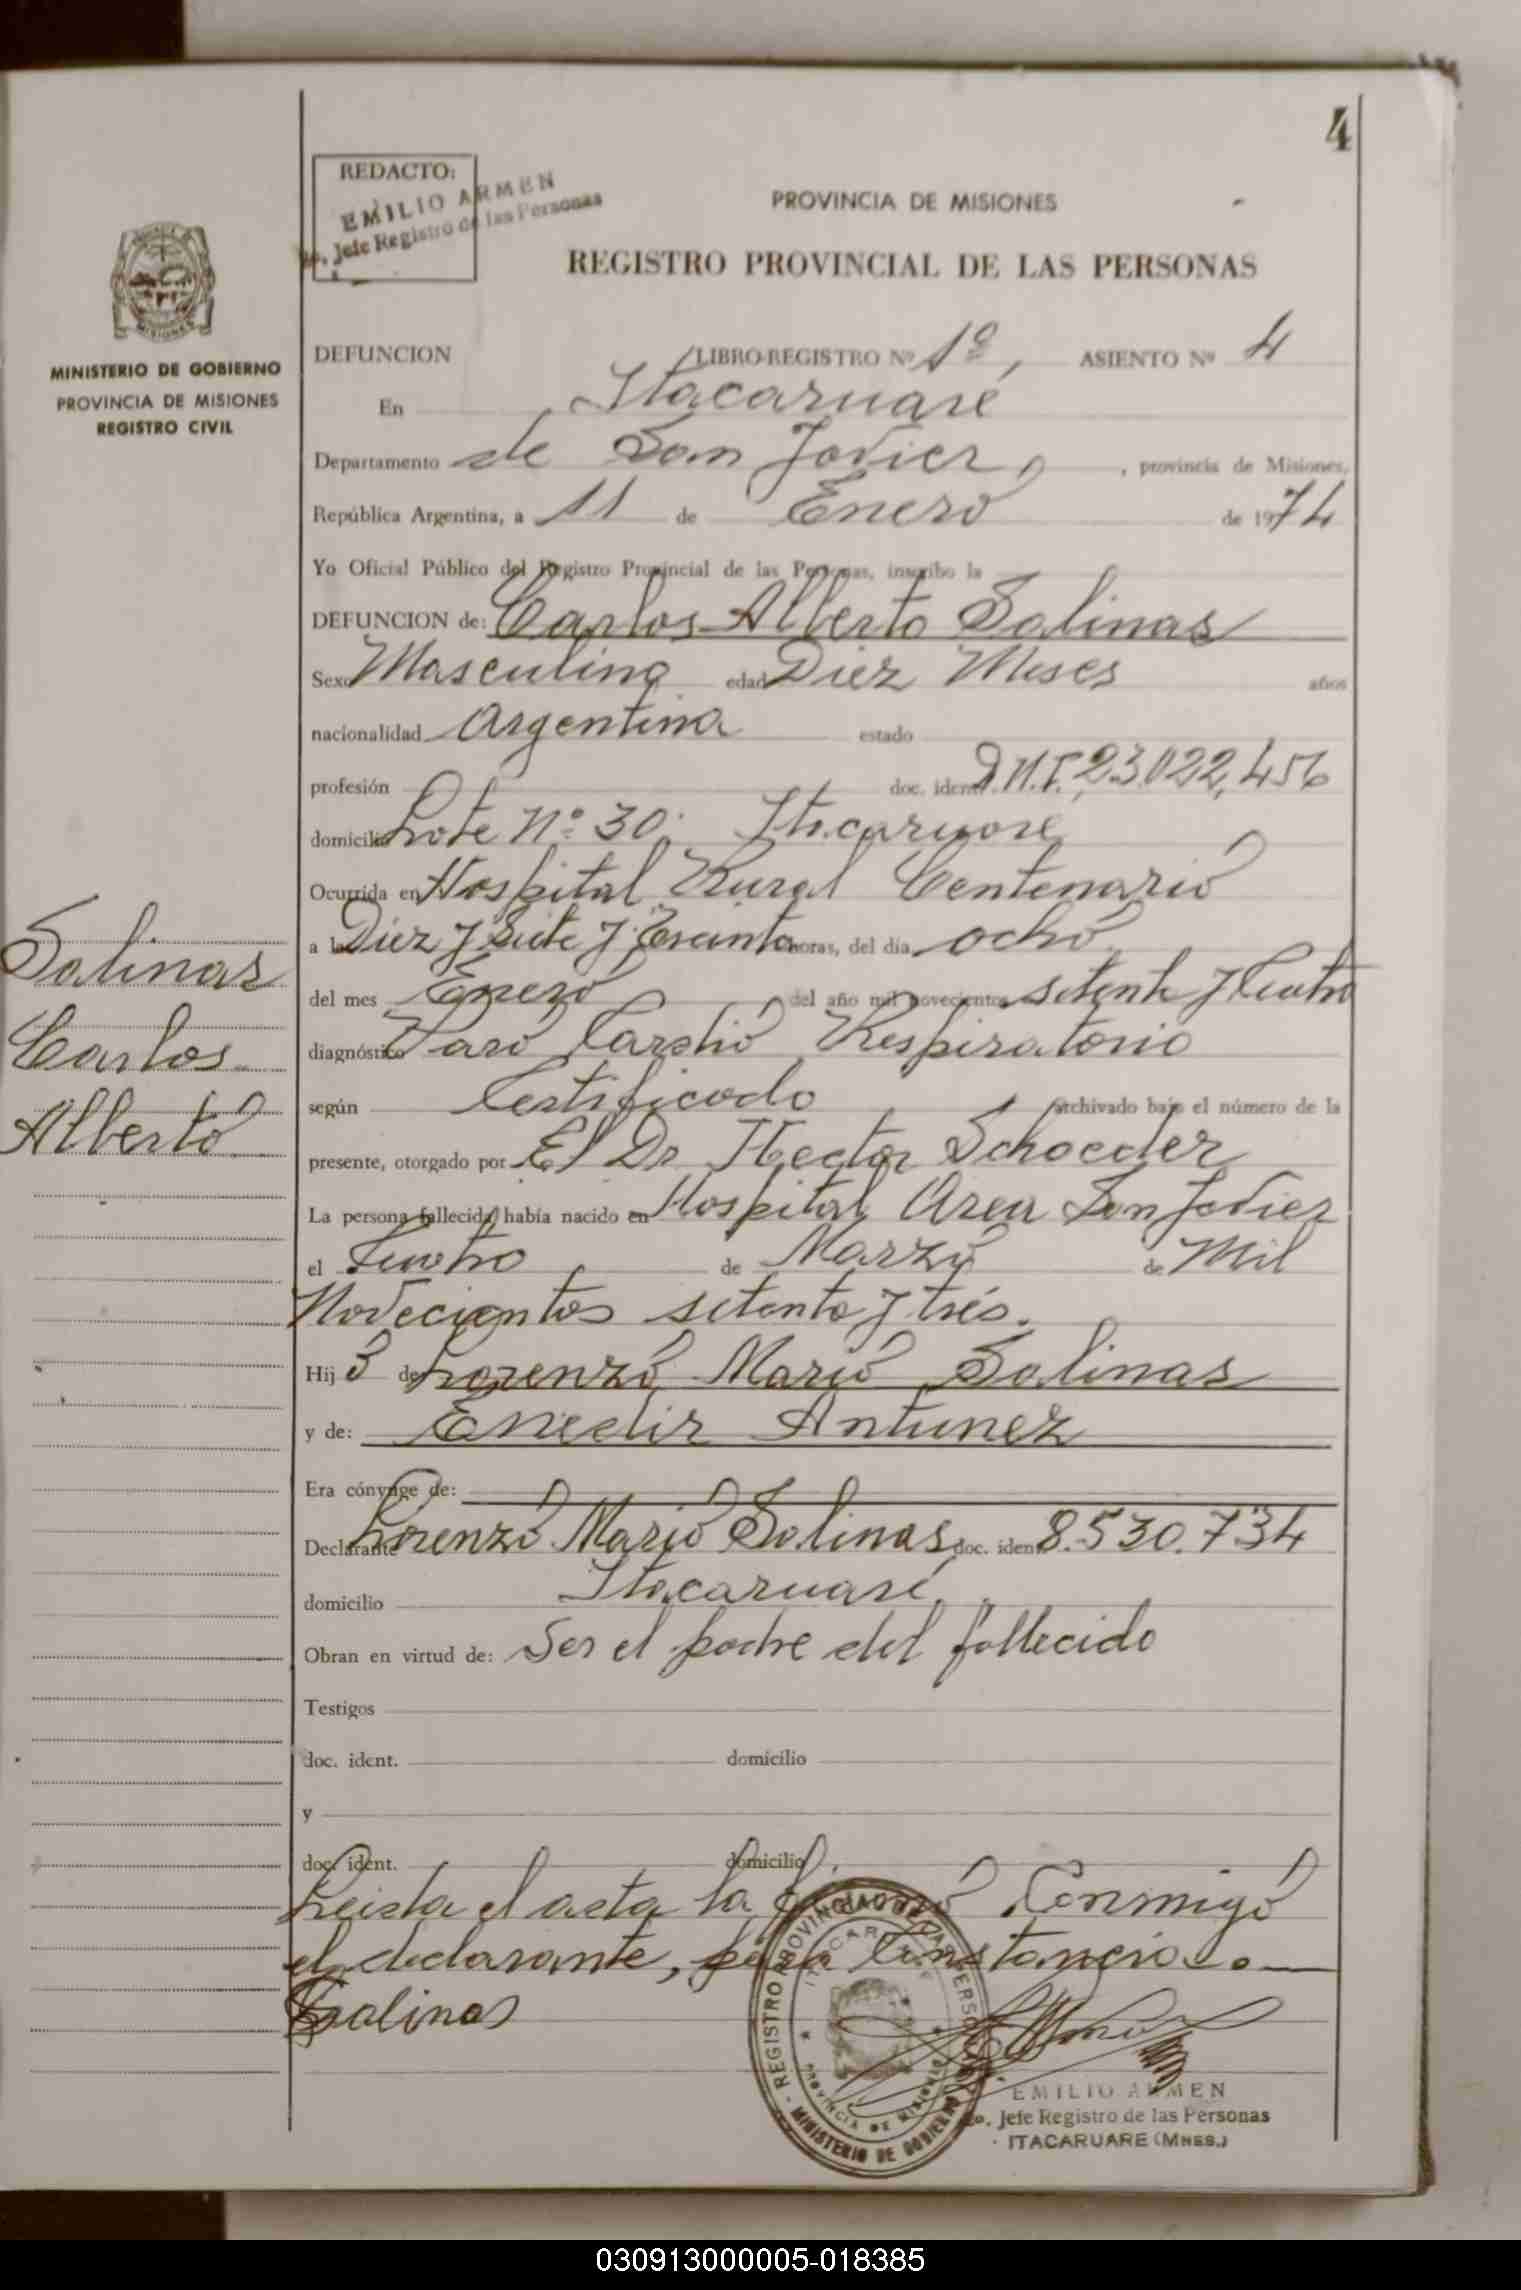 4
REDACTO:
EMILIO ARMEN
Jefe Registro de las Personas
PROVINCIA DE MISIONES
REGISTRO PROVINCIAL DE LAS PERSONAS
MISIONES
MINISTERIO DE GOBIERNO
PROVINCIA DE MISIONES
REGISTRO CIVIL
DEFUNCION LIBRO-REGISTRO Nº 1º, ASIENTO Nº 4
En Itacaruaré
Departamento de San Javier, , provincia de Misiones,
República Argentina, a 11 de Enero de 1974
Yo Oficial Público del Registro Provincial de las Personas, inscribo la
DEFUNCION de: Carlos Alberto Salinas
Sexo Masculino edad Diez Meses años
nacionalidad Argentina estado
profesión doc. ident. D.N.I. 23.022,456
domicilio Lote Nº 30. Itacaruaré
Ocurrida en Hospital Rural Centenario
a las Diez y Siete y Treinta horas, del día ocho
del mes Enero del año mil novecientos setenta y Cuatro
diagnóstico Paro Cardio Respiratorio
según Certificado archivado bajo el número de la
presente, otorgado por El Dr Hector Schoeder
La persona fallecida había nacido en Hospital Area San Javier
el Cuatro de Marzo de Mil
Novecientos setenta y trés.
Hijo de Lorenzo Mario Salinas
y de: Enedir Antunez
Era cónyuge de:
Declarante Lorenzo Mario Salinas doc. ident. 8.530.734
domicilio Itacaruaré
Obran en virtud de: Ser el padre del fallecido
Testigos
doc. ident. domicilio
y
doc. ident. domicilio
Leida el acta la firmó Conmigo
el declarante, para Constancia.
Salinas
Salinas
Carlos
Alberto
REGISTRO PROVINCIAL DE LAS PERSONAS
MINISTERIO DE GOBIERNO
PROVINCIA DE MISIONES
EMILIO ARMEN
Jefe Registro de las Personas
ITACARUARE (MNES.)
030913000005-018385